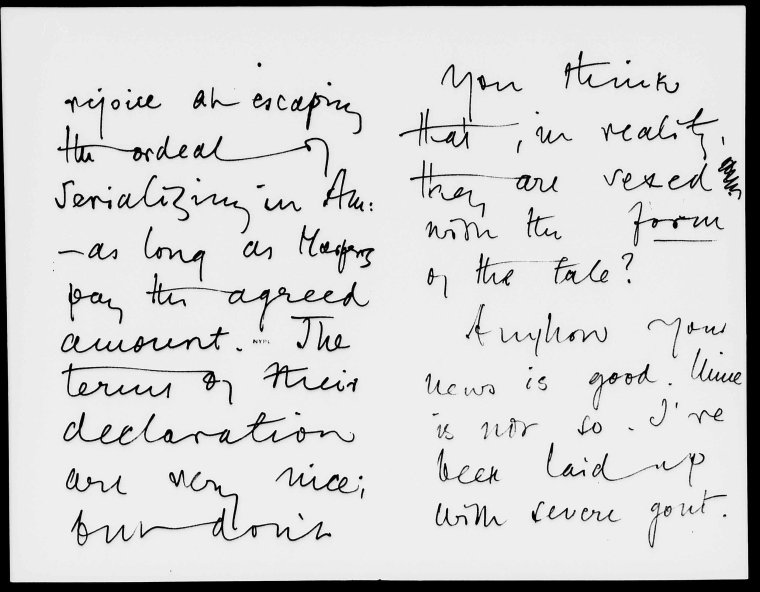 rejoice at escaping
the ordeal of
Serializing in Am:
– as long as Harpers
pay the agreed
amount. The
terms of their
declaration
are very nice;
but don't
you think
that, in reality,
they are vexed
with the form
of the tale?
Anyhow your
news is good. Mine
is not so. I've
been laid up
with severe gout.